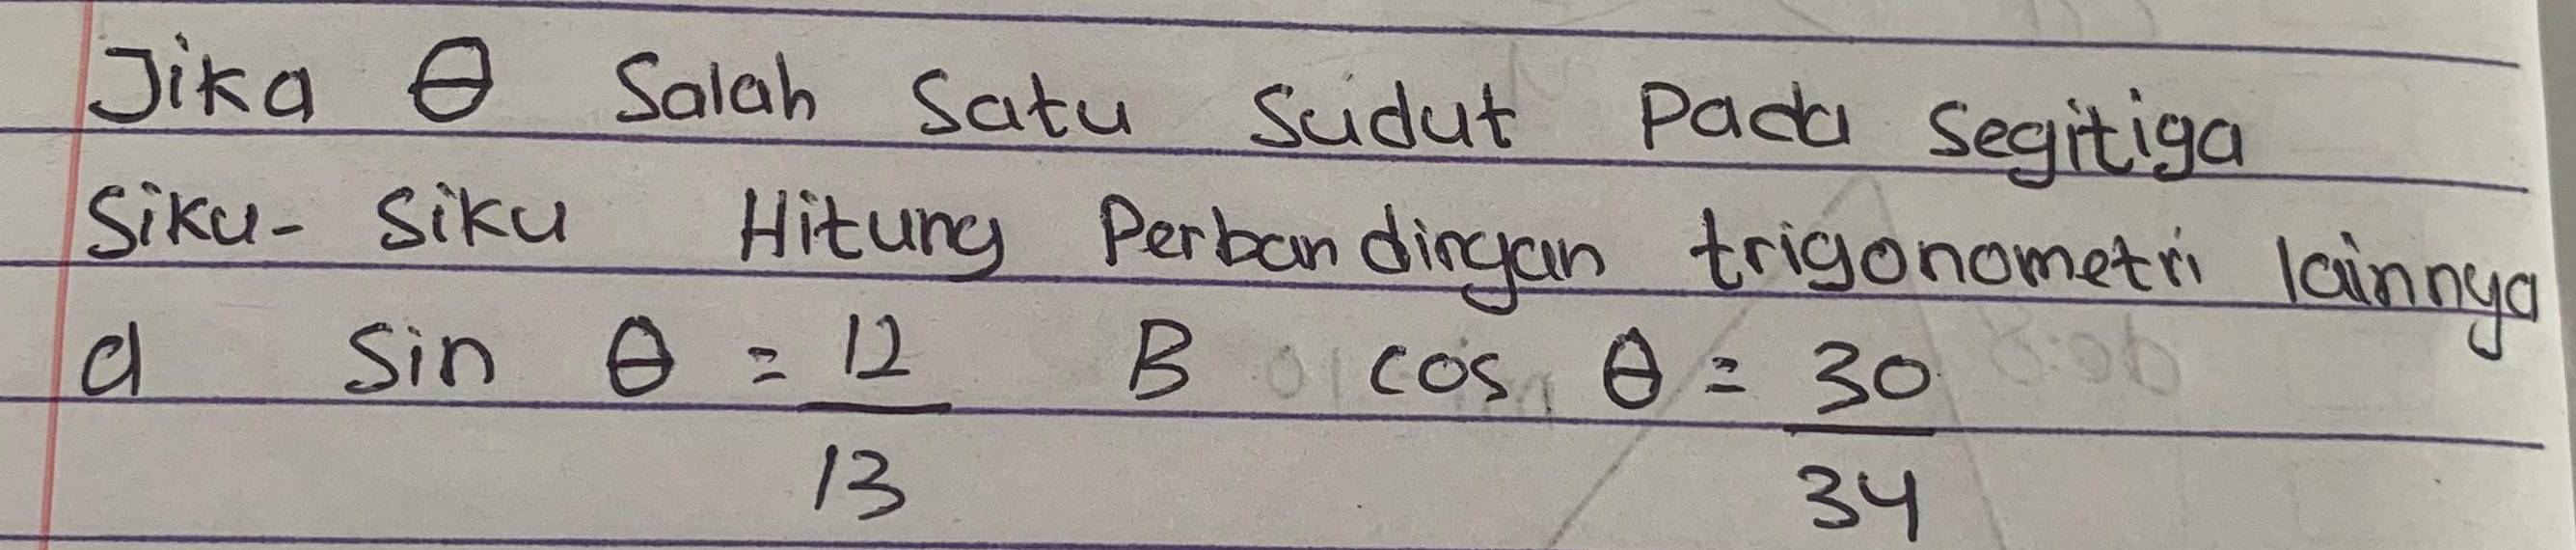 Jika θ Salah Satu Sudut Pada Segitiga
Siku-Siku Hitung Perbandingan trigonometri lainnya
a sin θ = 12/13 B cos θ = 30/34